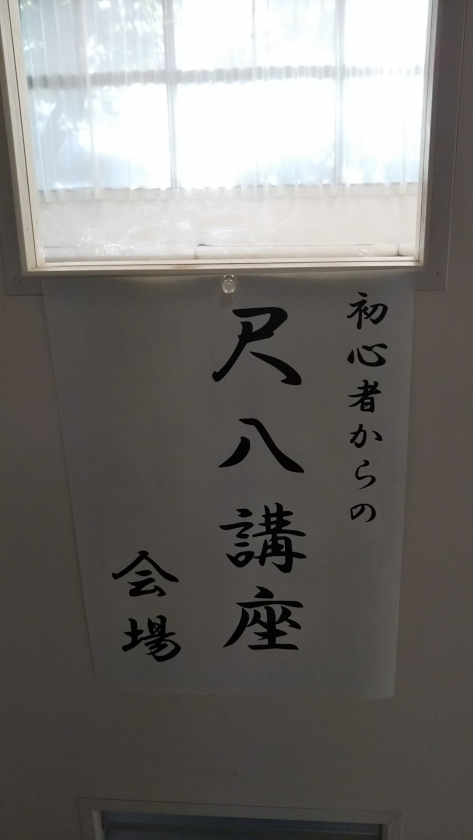 初心者からの
尺八講座
会場